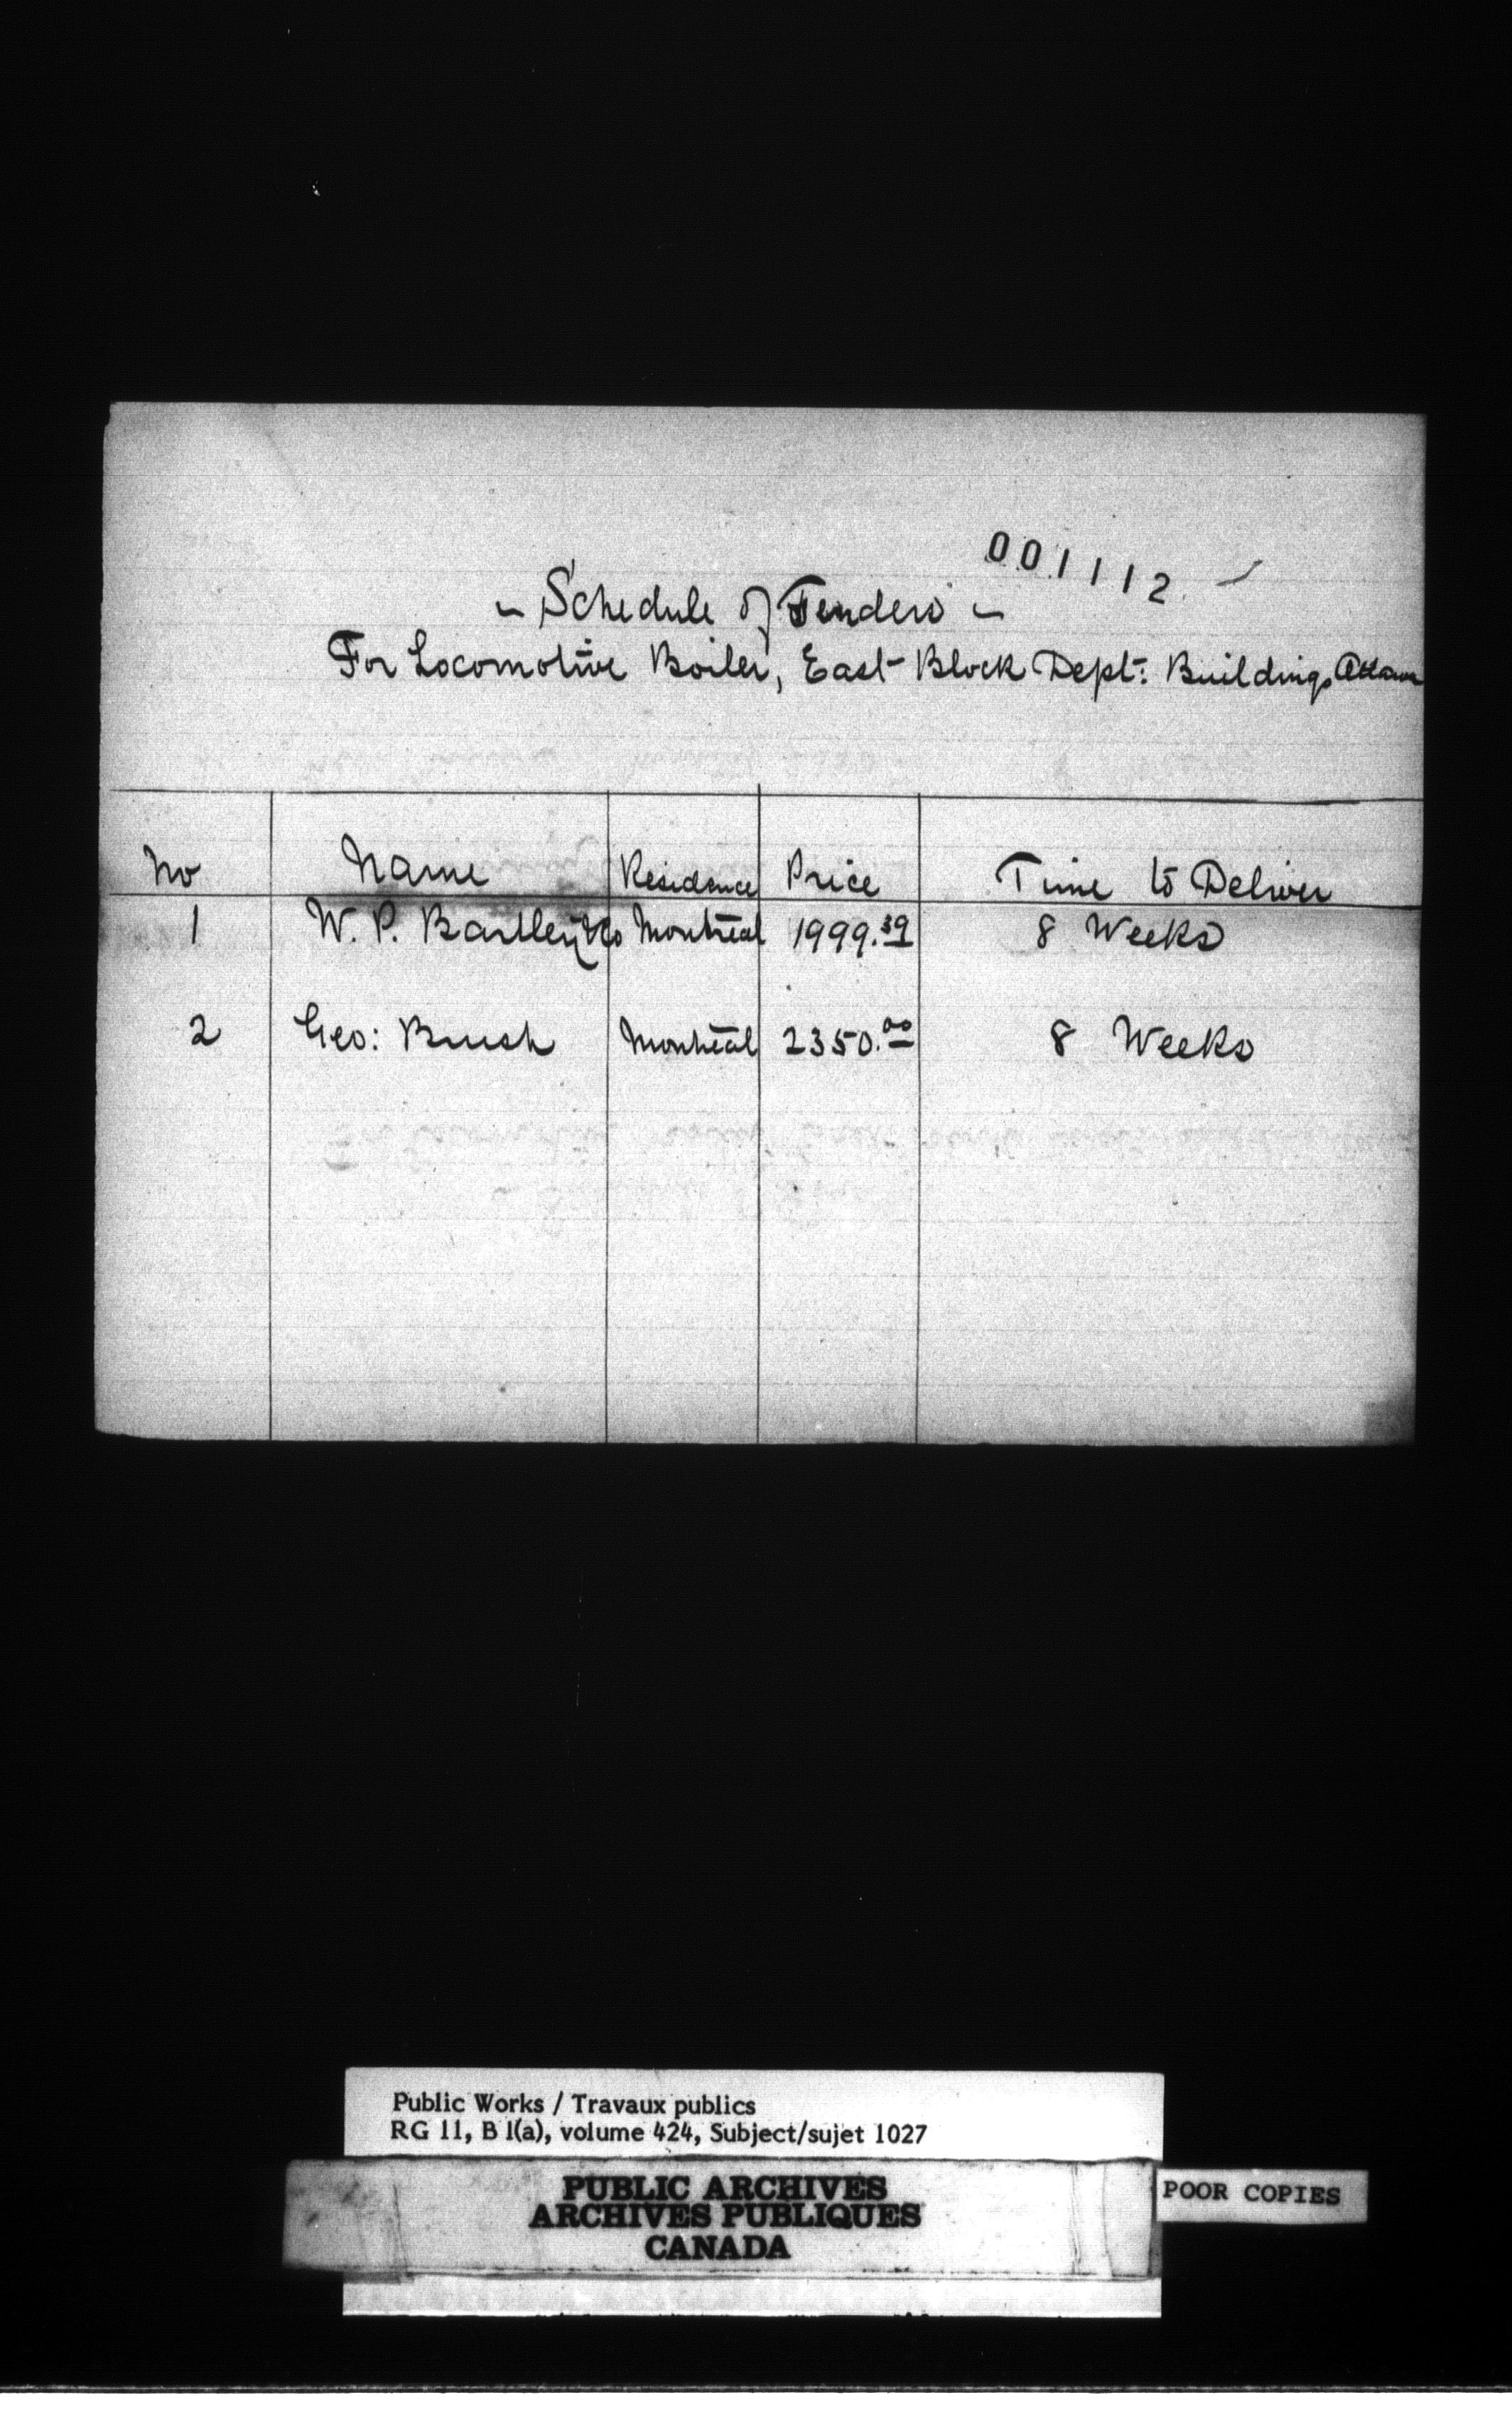 001112
- Schedule of Tenders -
For Locomotive Boiler, East Block Dept: Buildings Ottawa
No Name Residence Price Time to Deliver
1 W. P. Bartley & Co Montreal 1999.39 8 Weeks
2 Geo: Brush Montreal 2350.00 8 Weeks
Public Works / Travaux publics
RG 11, B 1(a), volume 424, Subject/sujet 1027
PUBLIC ARCHIVES
ARCHIVES PUBLIQUES
CANADA
POOR COPIES